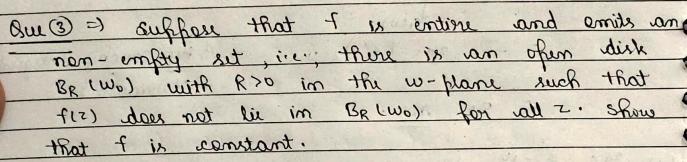 Que ③ ⇒ suppose that f is entire and emits an
non-empty set, i.e., there is an open disk
BR (w₀) with R>0 in the w-plane such that
f(z) does not lie in BR (w₀) for all z. show
that f is constant.